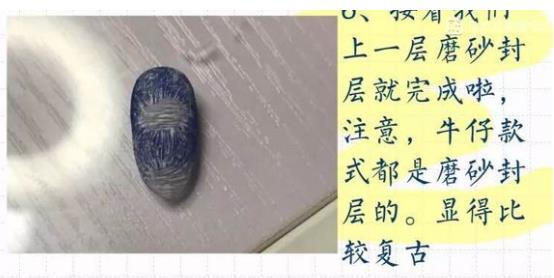 6、接着我们
上一层磨砂封
层就完成啦，
注意，牛仔款
式都是磨砂封
层的。显得比
较复古